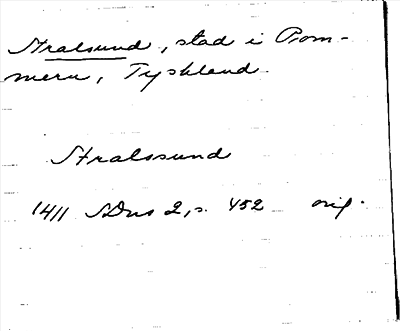 Stralsund, stad i Pom-
mern, Tyskland.
Stralssund
1411 SDns 2, s. 452 orig.